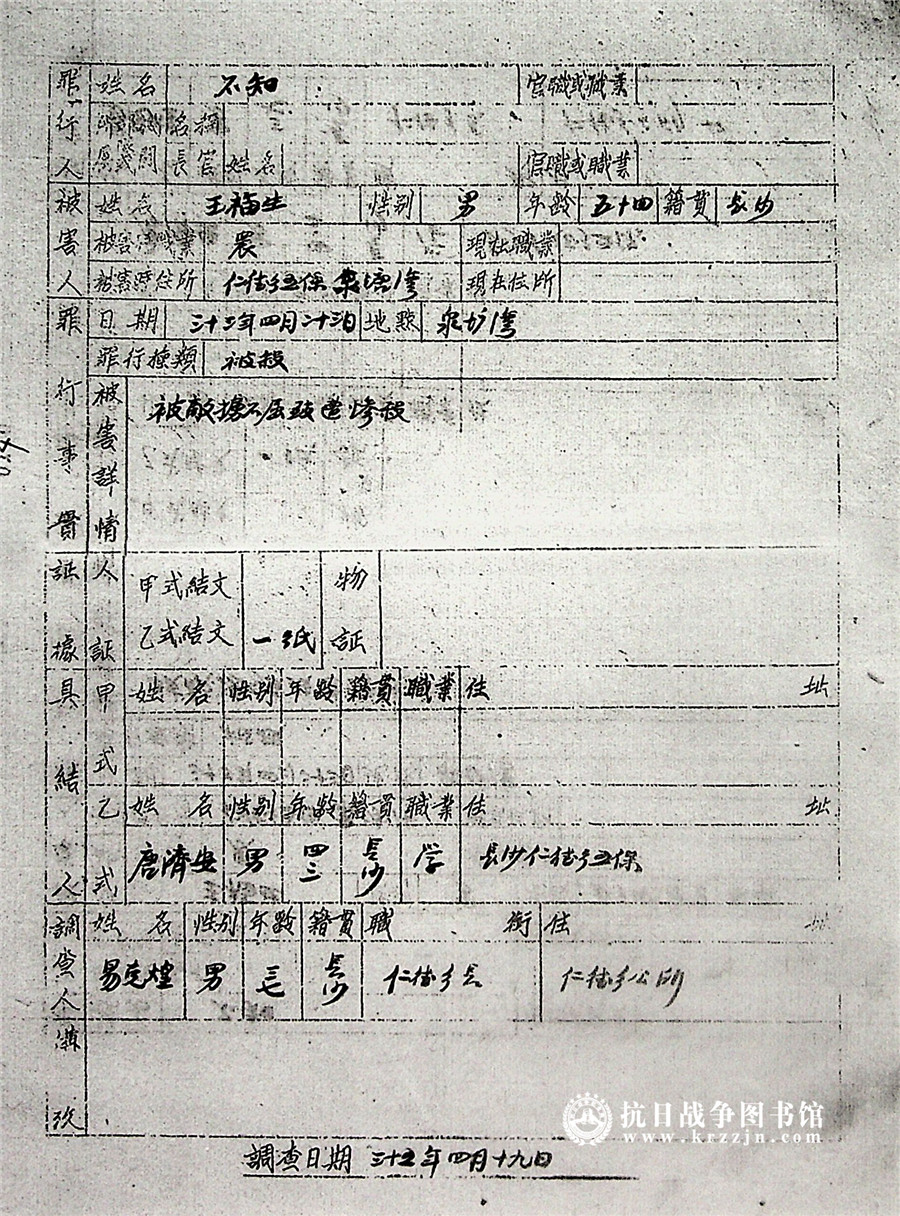 罪行人 姓名 不知 官職或職業
名稱
長官姓名 官職或職業
被害人 姓名 王福生 性别 男 年齡 五十四 籍貫 長沙
被害時職業 農 現在職業
被害時住所 仁 五保 灣 現在住所
罪行事實 日期 三十三年四月二十三日 地點 泉 灣
罪行種類 被殺
被害詳情 被敵擄不屈致遭慘殺
証據 人証 甲式結文 物証
乙式結文 一紙
具結人 甲式 姓名 性别 年齡 籍貫 職業 住址
乙式 姓名 性别 年齡 籍貫 職業 住址
唐濟安 男 四三 長沙 学 長沙仁 五保
調查人 姓名 性别 年齡 籍貫 職銜 住址
易克煌 男 長沙 仁 乡長 仁 乡公所
備攷
調查日期 三十五年四月十九日
抗日战争图书馆
www.krzzjn.com